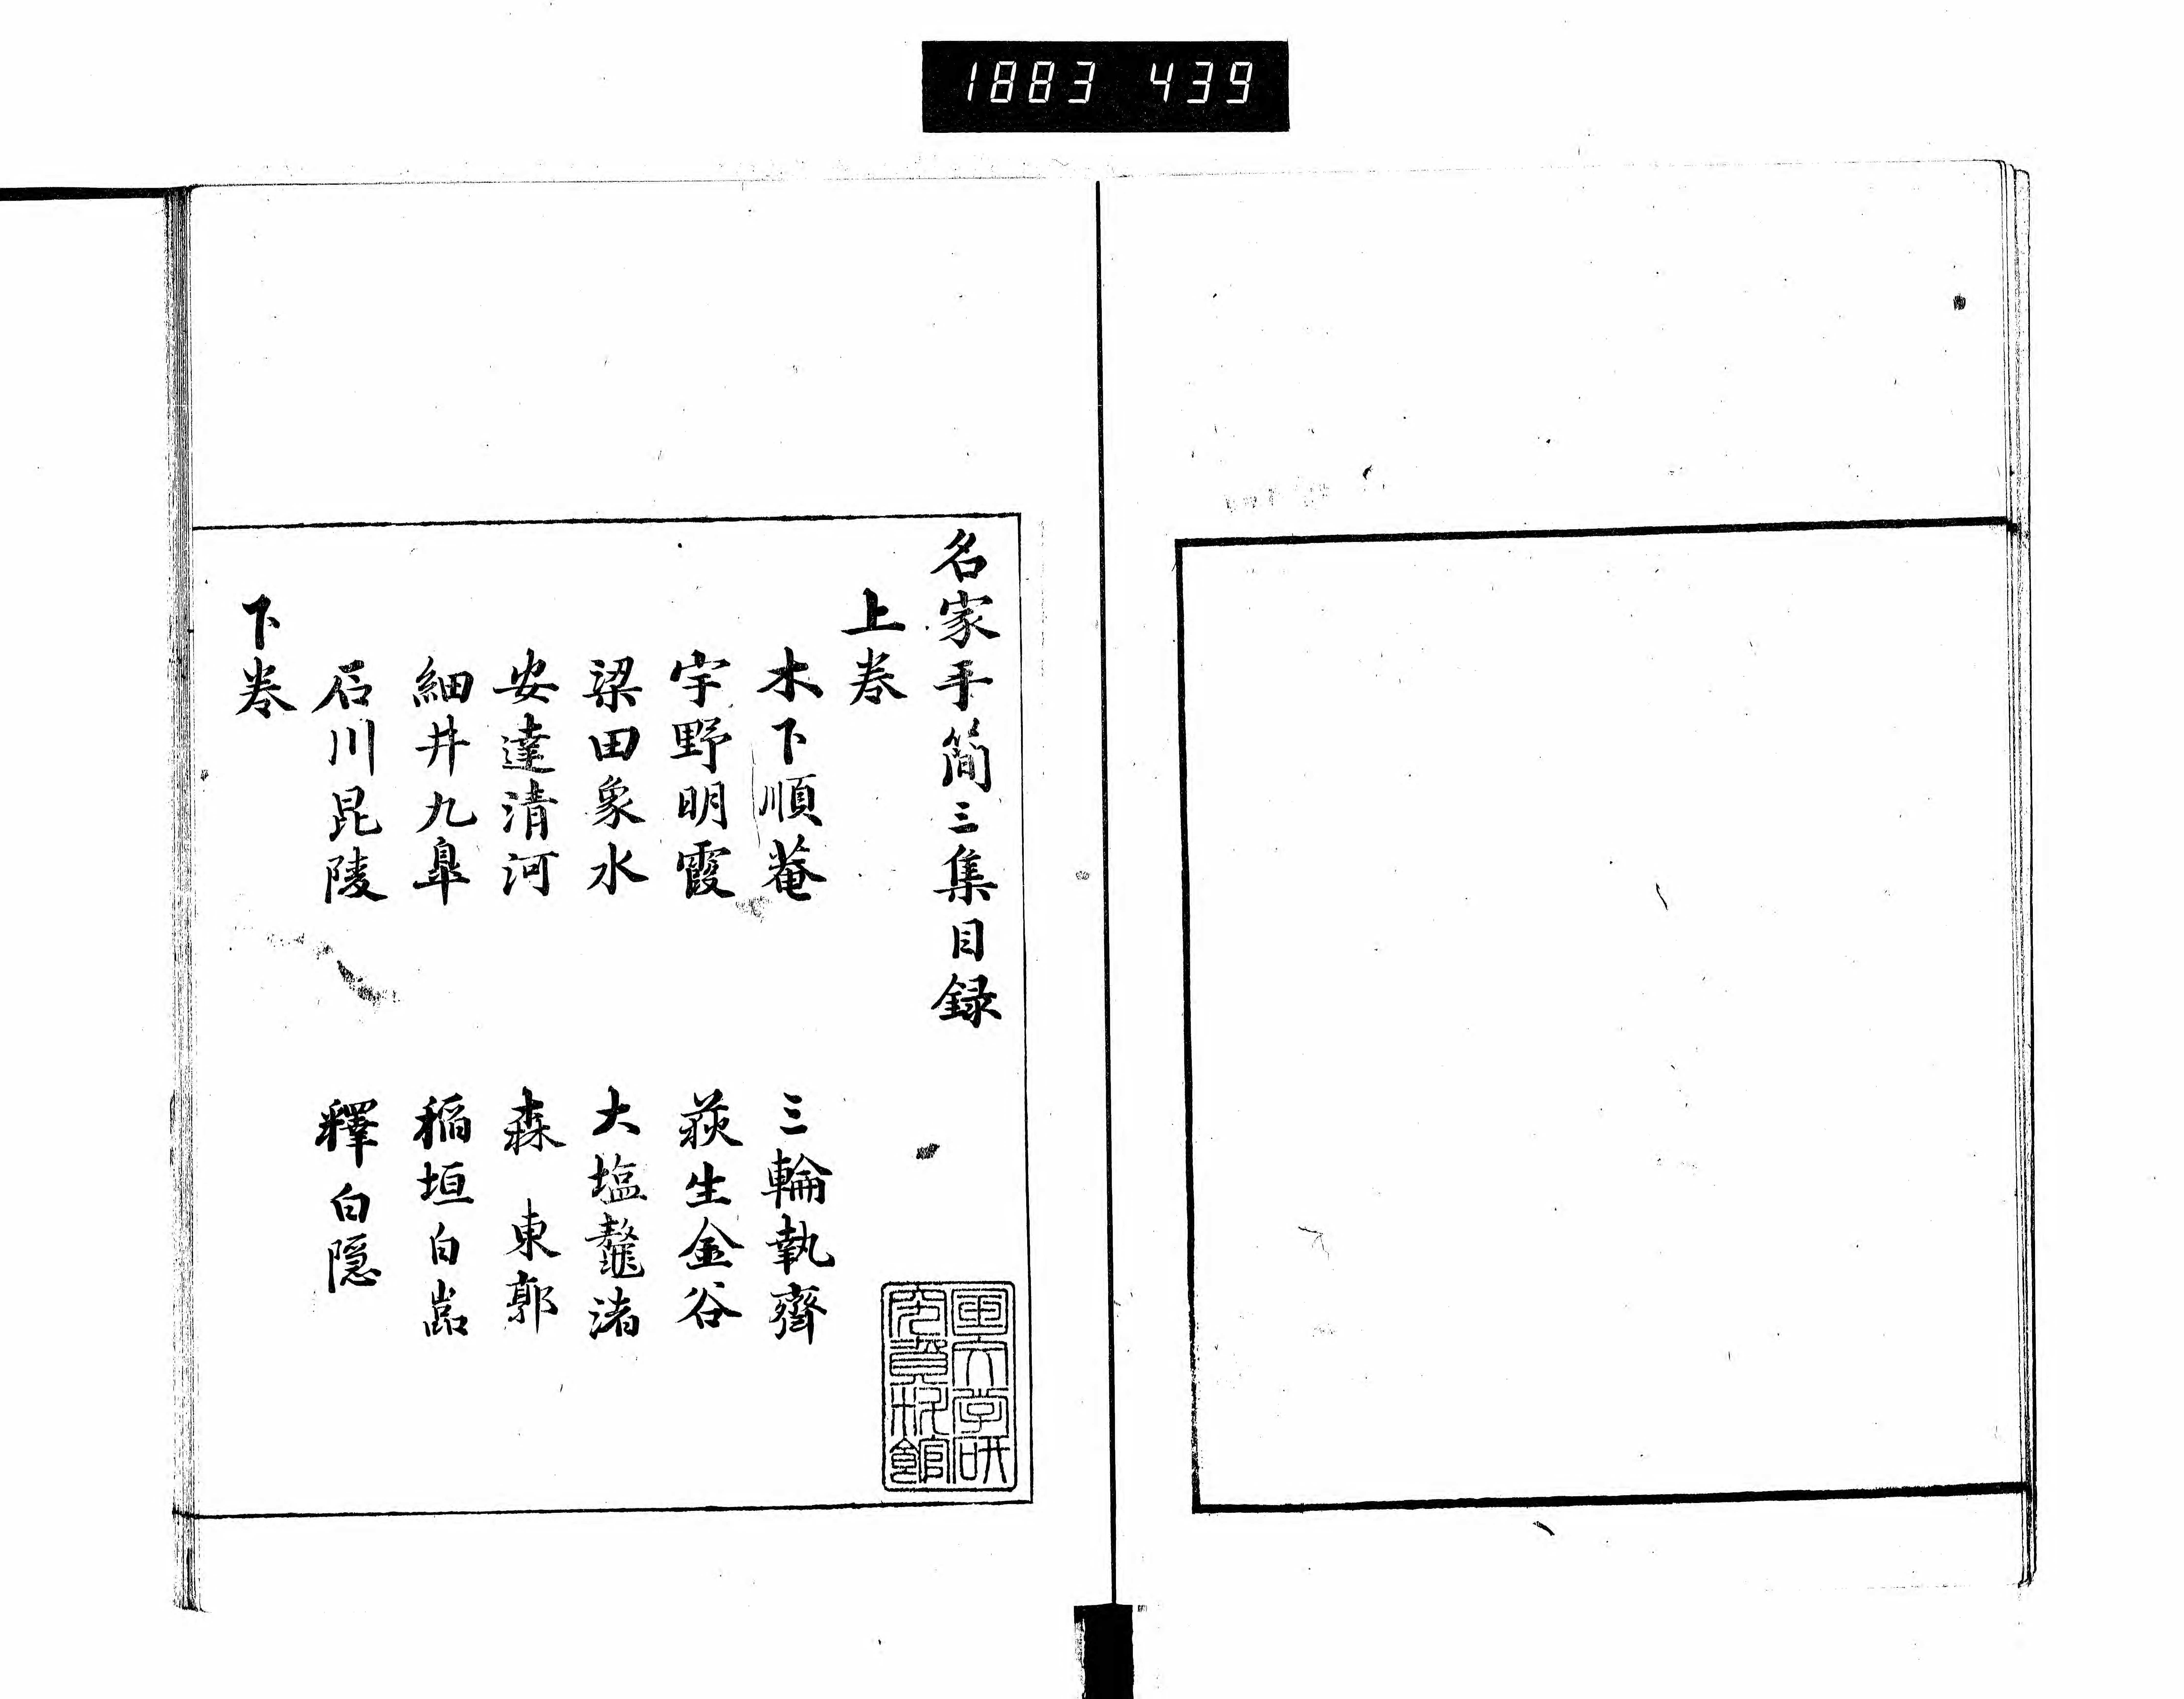 1883 439
名家手簡三集目録
上巻
木下順菴 三輪執齋
宇野明霞 荻生金谷
梁田象水 大塩鼇渚
安達清河 森東郭
細井九皐 稲垣白嵓
石川昆陵 釋白隠
下巻
国文学研
究資料館